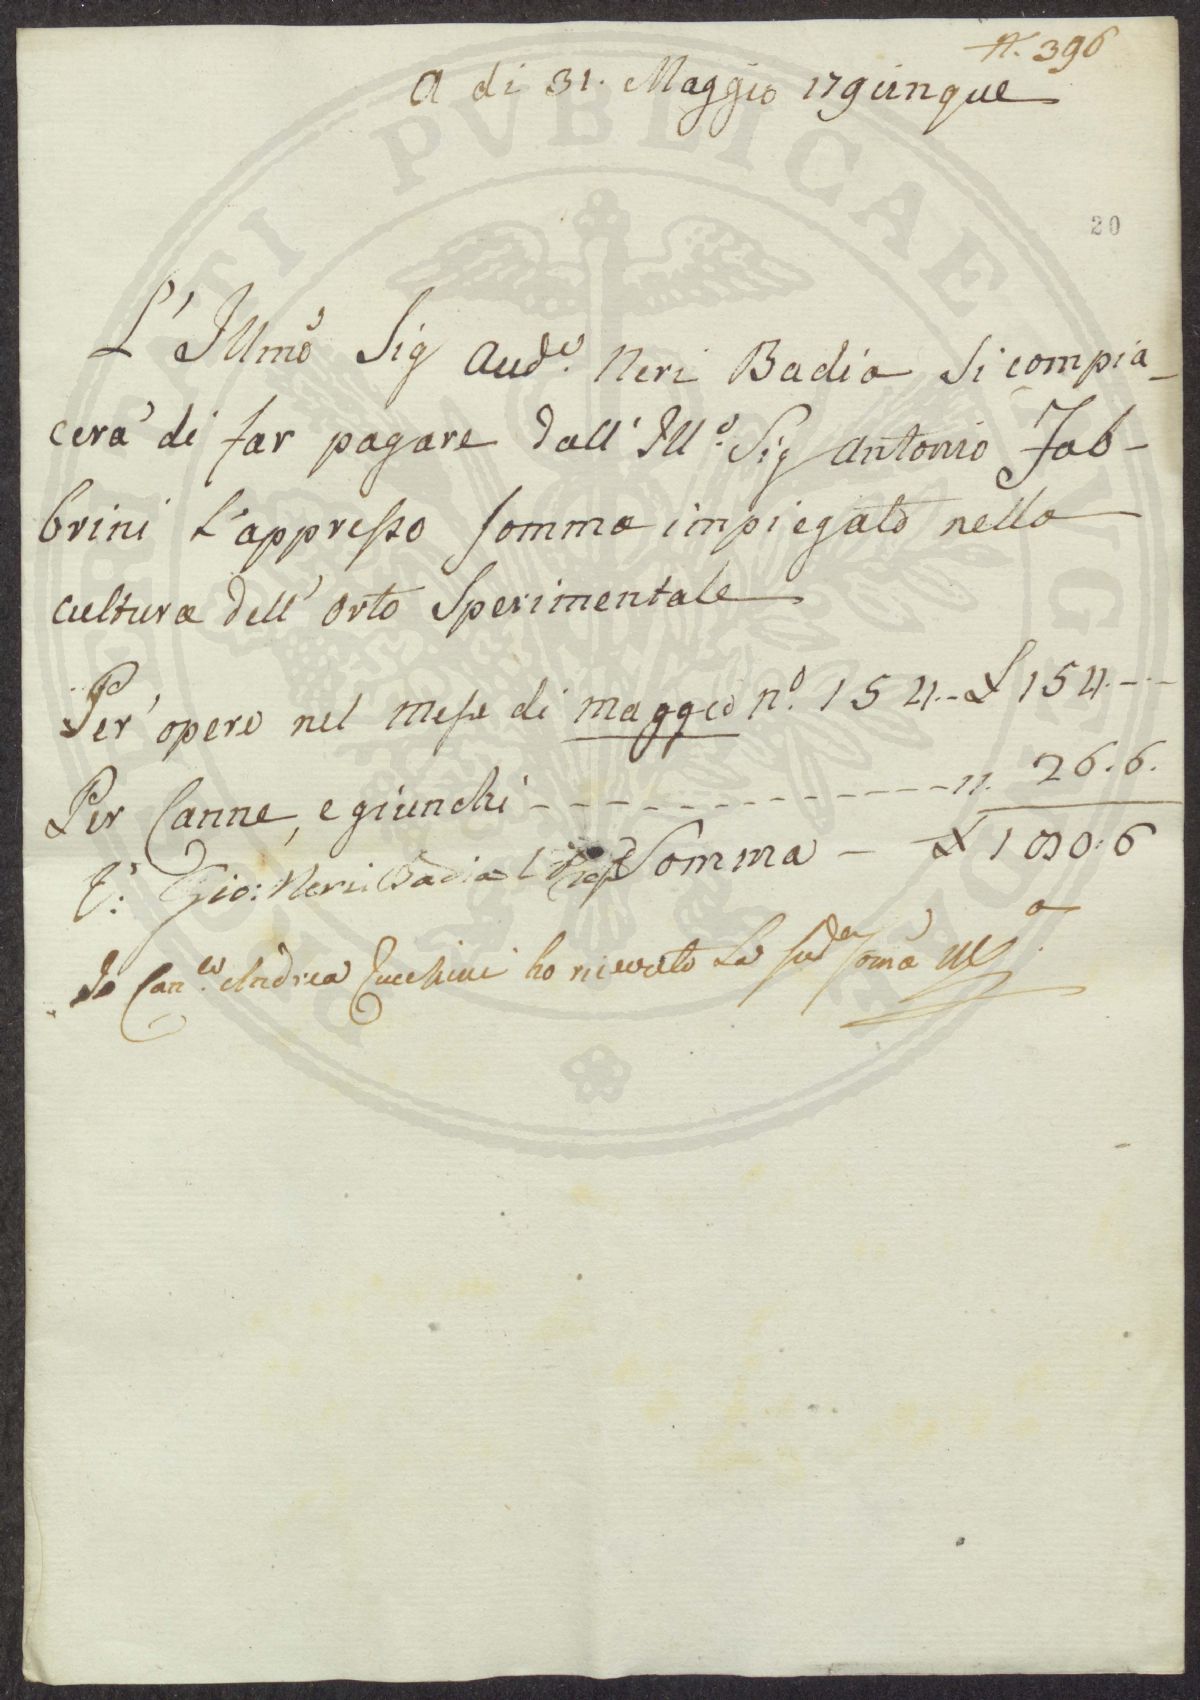 N. 396
A di 31. Maggio 179cinque
20
L'Illmo Sig Aud.e Neri Badia Si compia-
cera' di far pagare dall' Ill.o Sig Antonio Fab-
brini L'appresso somma impiegato nella
cultura dell' Orto Sperimentale
Per opere nel mese di maggio n.o 154.- £ 154.--
Per Canne, e giunchi - - - - - - - - - - - - - - - - ". 26.6.
Somma - £ 180.6
Gio: Neri Badia
Io Can.co Andrea Zucchini ho ricevuto La sud.a somà